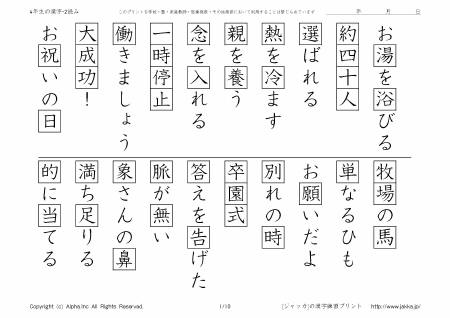 4年生の漢字-2読み
このプリントを学校・塾・家庭教師・医療機関・その他施設において利用することは禁じられています
年 月 日
お湯を浴びる
約四十人
選ばれる
熱を冷ます
親を養う
念を入れる
一時停止
働きましょう
大成功!
お祝いの日
牧場の馬
単なるひも
お願いだよ
別れの時
卒園式
答えを告げた
脈が無い
象さんの鼻
満ち足りる
的に当てる
Copyright (c) Alpha.Inc All Rights Reserved.
1/10
[ジャッカ]の漢字練習プリント http://www.jakka.jp/